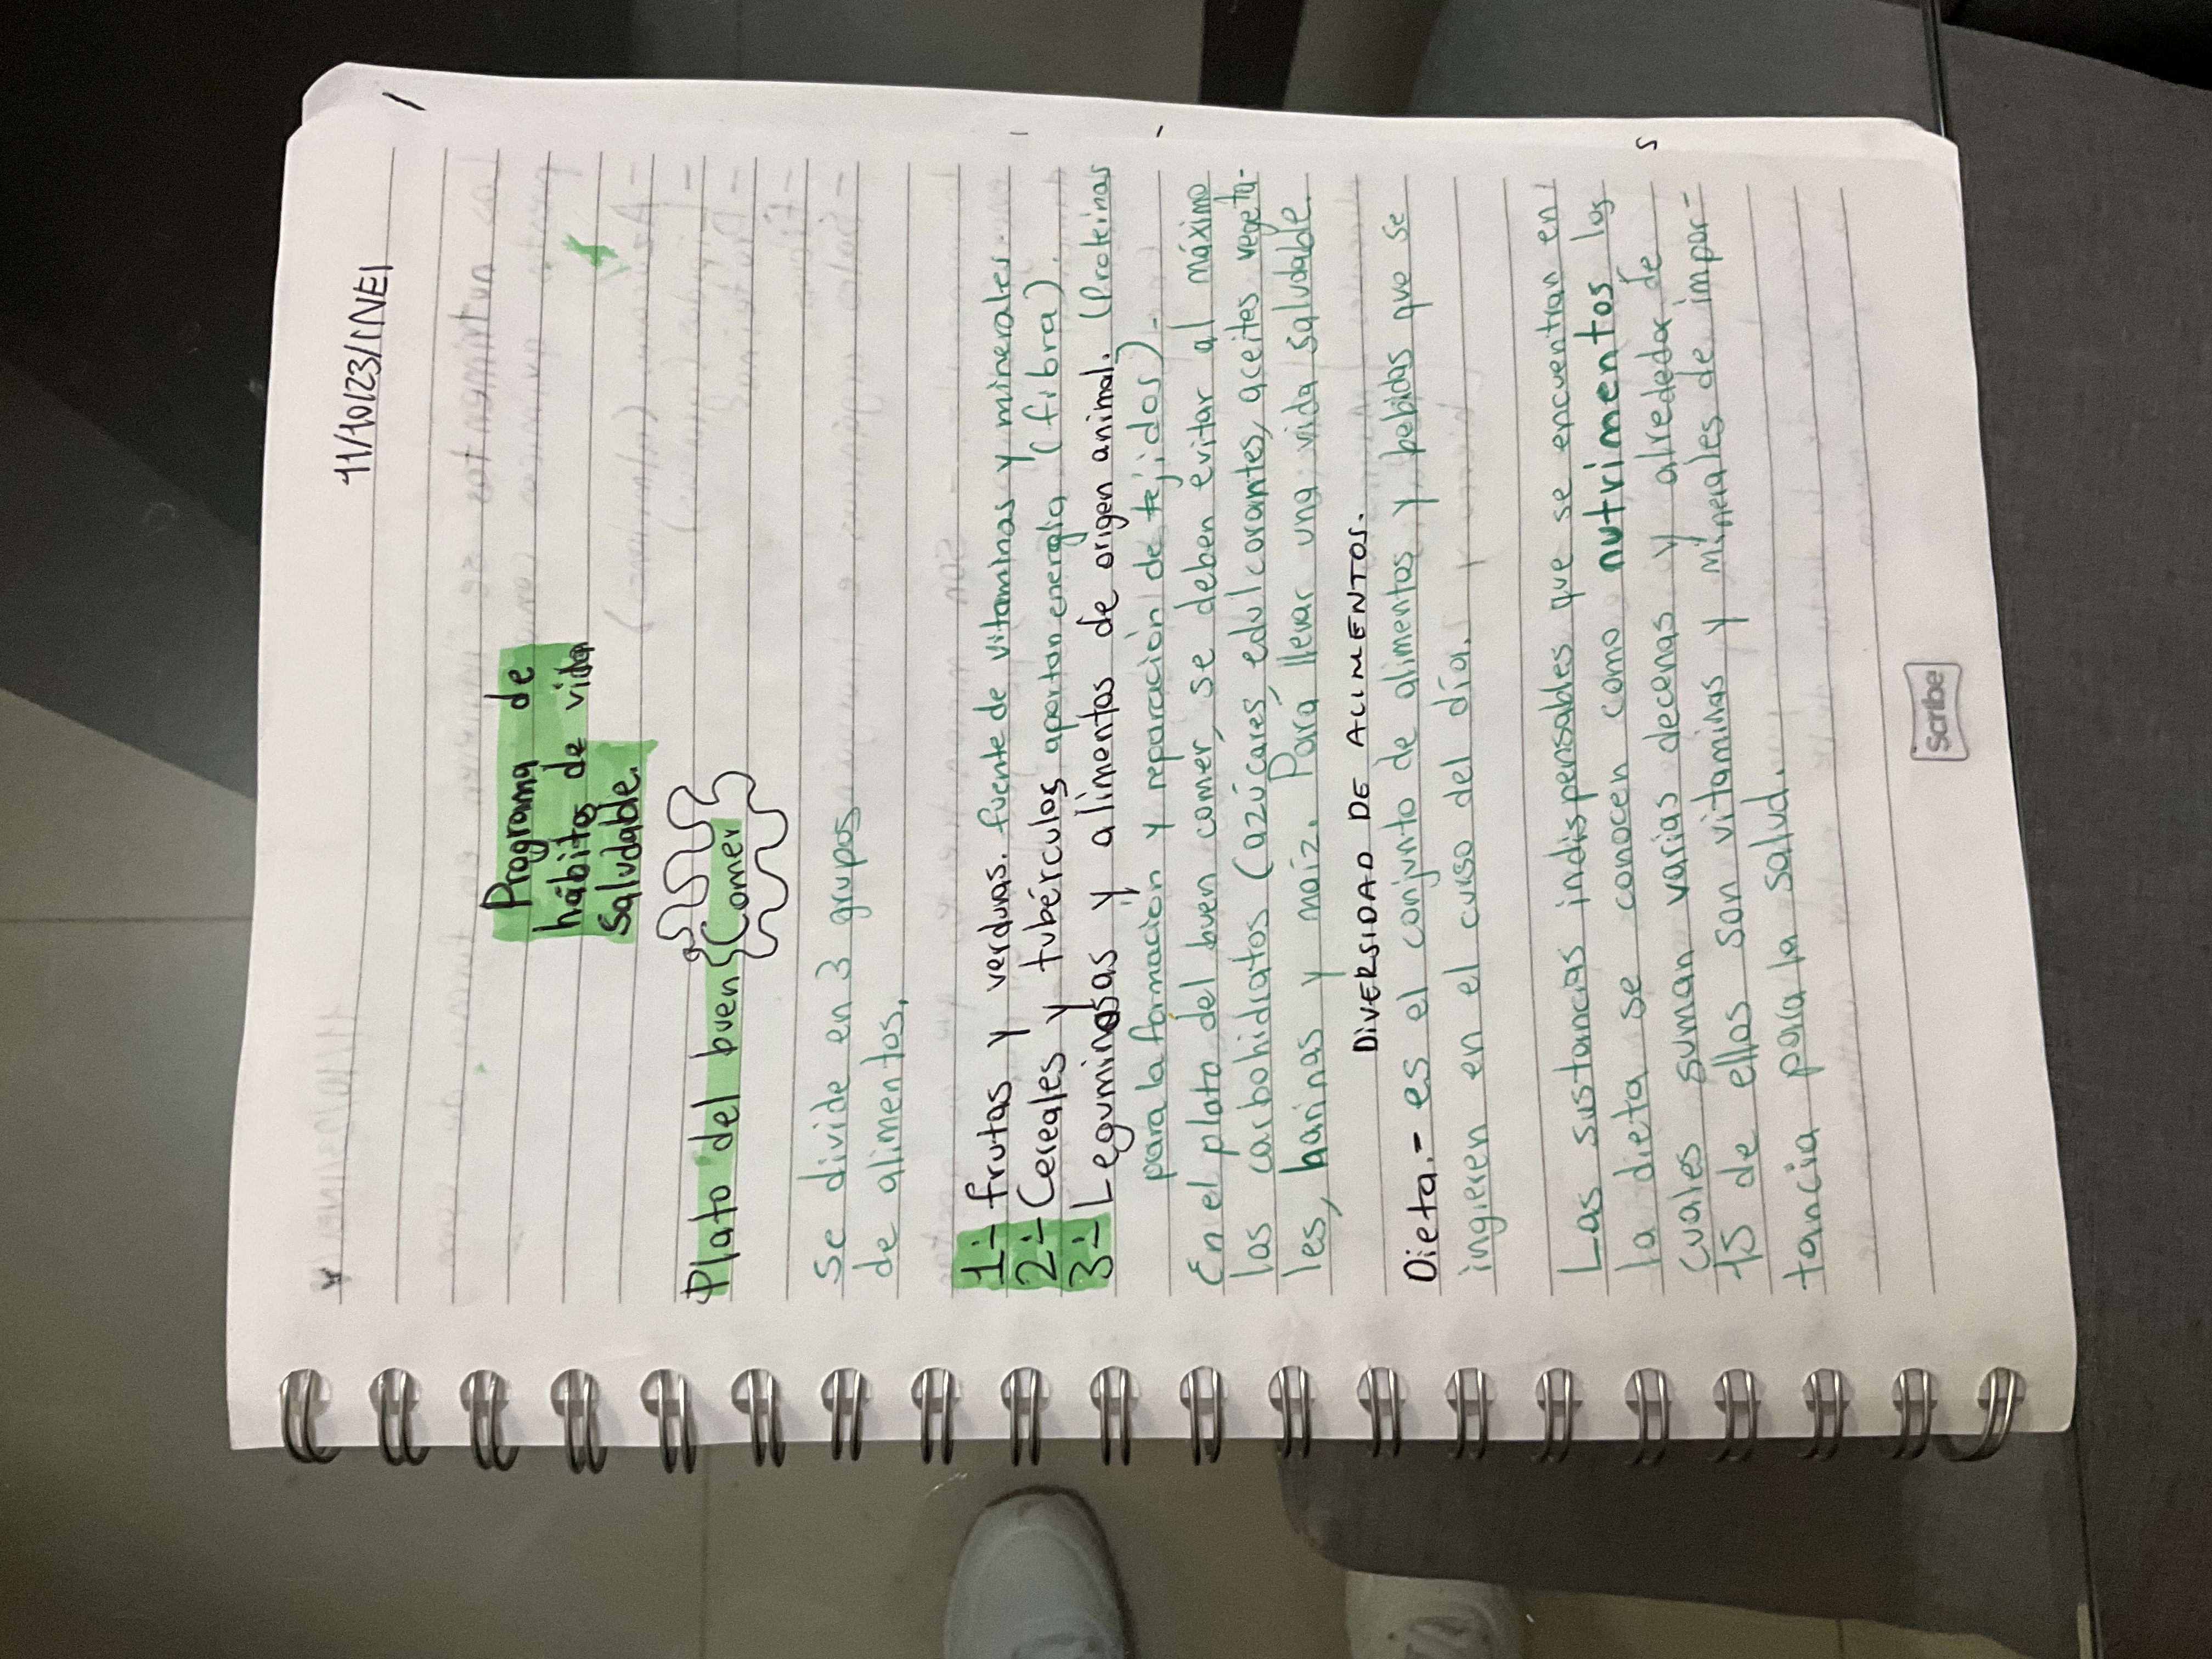 11/10/23/INEI
Programa de
hábitos de vida
saludable.
Plato del buen Comer
Se divide en 3 grupos
de alimentos.
1.- frutas y verduras. fuente de vitaminas y minerales.
2.- Cereales y tubérculos aportan energía (fibra).
3.- Leguminosas y alimentos de origen animal. (Proteinas
para la formación y reparación de tejidos).
En el plato del buen comer, se deben evitar al máximo
los carbohidratos (azúcares, edulcorantes, aceites vegeta-
les, harinas y maíz. Para llevar una vida saludable.
DIVERSIDAD DE ALIMENTOS.
Dieta.- es el conjunto de alimentos y bebidas que se
ingieren en el curso del día.
Las sustancias indispensables que se encuentran en
la dieta se conocen como nutrimentos los
cuales suman varias decenas y alrededor de
15 de ellos son vitaminas y minerales de impor-
tancia para la salud.
scribe